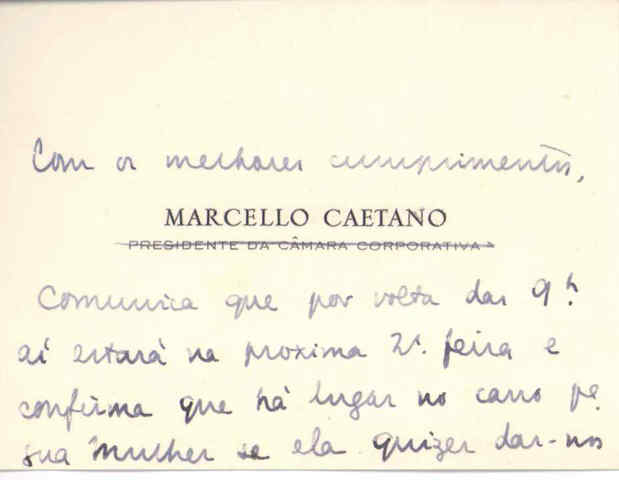 Com os melhores cumprimentos,
MARCELLO CAETANO
PRESIDENTE DA CÂMARA CORPORATIVA
Comunica que por volta das 9h.
aí estará na proxima 2ª. feira e
confirma que há lugar no carro pª.
sua mulher se ela quizer dar-nos